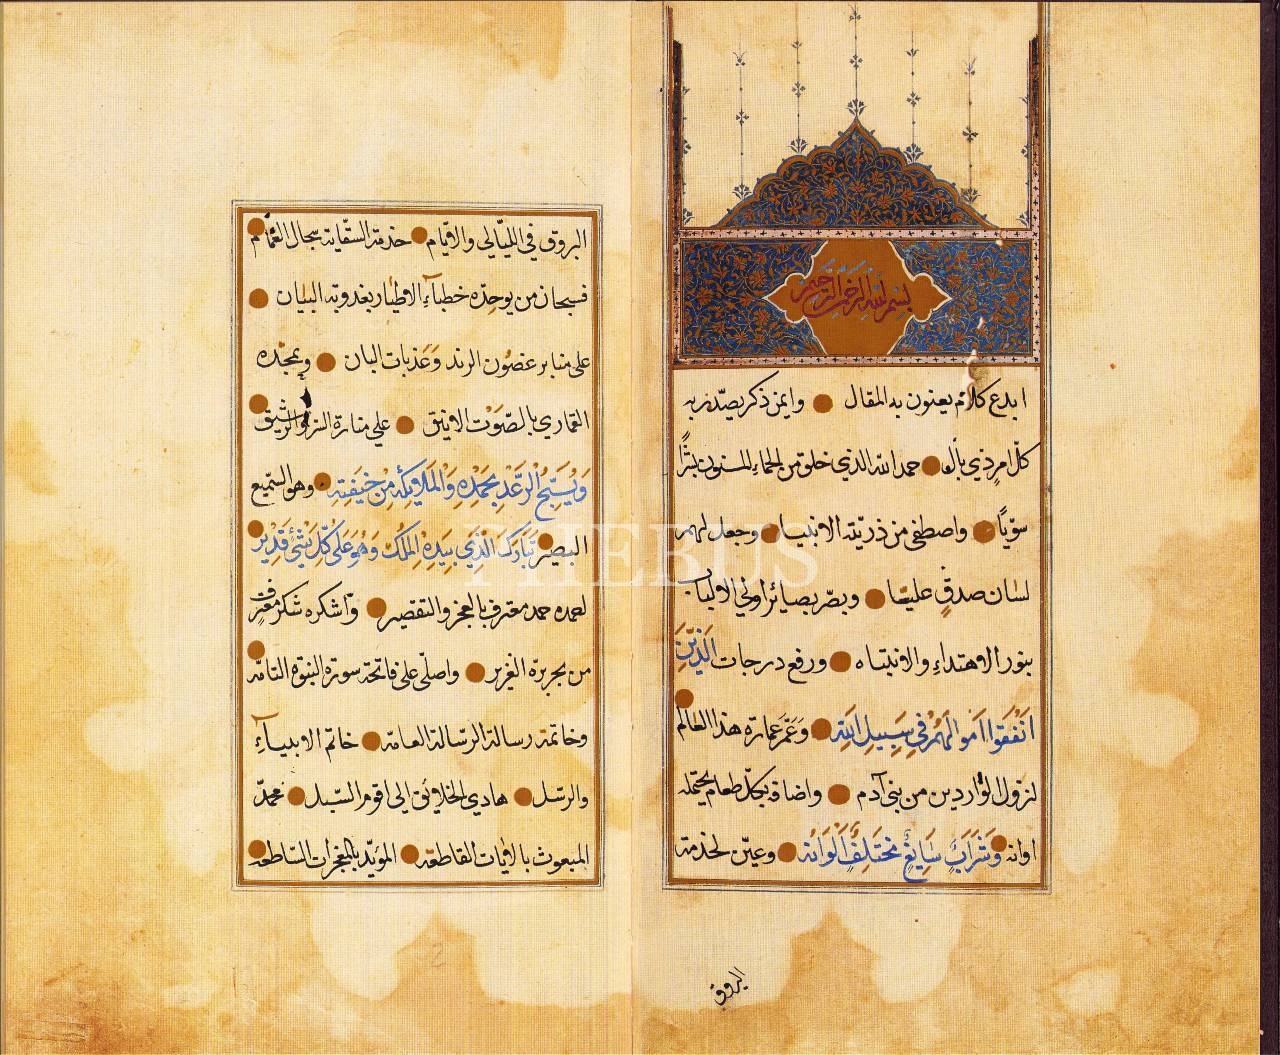 بسم الله الرحمن الرحيم
ابدع كلام يعنون به المقال وايمن ذكر يصدر به
كل امر ذي بال حمد الله الذي خلق من الحماء المسنون بشرًا
سويًا واصطفى من ذريته الانبيا وجعل لهم
لسان صدقٍ عليا وبصّر بصائر اولي الالباب
بنور الاهتداء والانتباه ورفع درجات الَّذِينَ
اَنْفَقُوا اَمْوالَهُمْ فِي سَبِيلِ اللهِ وَعَمَّر عمارة هذا العالم
لنزول الواردين من بني آدم واضافه بكل طعام يحتمله
اوانه وَشَرَابٌ سَايِغٌ مُخْتَلِفٌ اَلْوَانُه وعيّن لخدمة
البروق
البروق في الليالي والايّام خدمة السقاية سجال الغمام
فسبحان من يوحّده خطبآء الاطيار بعذوبة البيان
على منابر غصون الرند وَعَذبات البان ويمجّده
القماري بالصّوْت الانيق على منارة السرو الرشيق
وَيُسَبِّحُ الرَّعْدُ بِحَمْدِهِ وَالْمَلَايِكَةُ مِنْ خِيفَتِهِ وهو السّميع
البصير تَبَارَكَ الَّذِي بِيَدِهِ الْمُلْكُ وَهُوَ عَلَى كُلِّ شَيْئٍ قَدِيْر
نحمده حمد معترف بالعجز والتقصير وآشكره شكر مغترف
من بحر برّه الغزير واصلّى على فاتحة سورة النبوّة التامّه
وخاتمة رسالة الرسالة العامّه خاتم الانبيآءِ
والرسل هادي الخلائق الى اقوم السّبل محمدٍ
المبعوث بالايات القاطعه المؤيّد بالمعجزات السّاطعه
PHEBUS